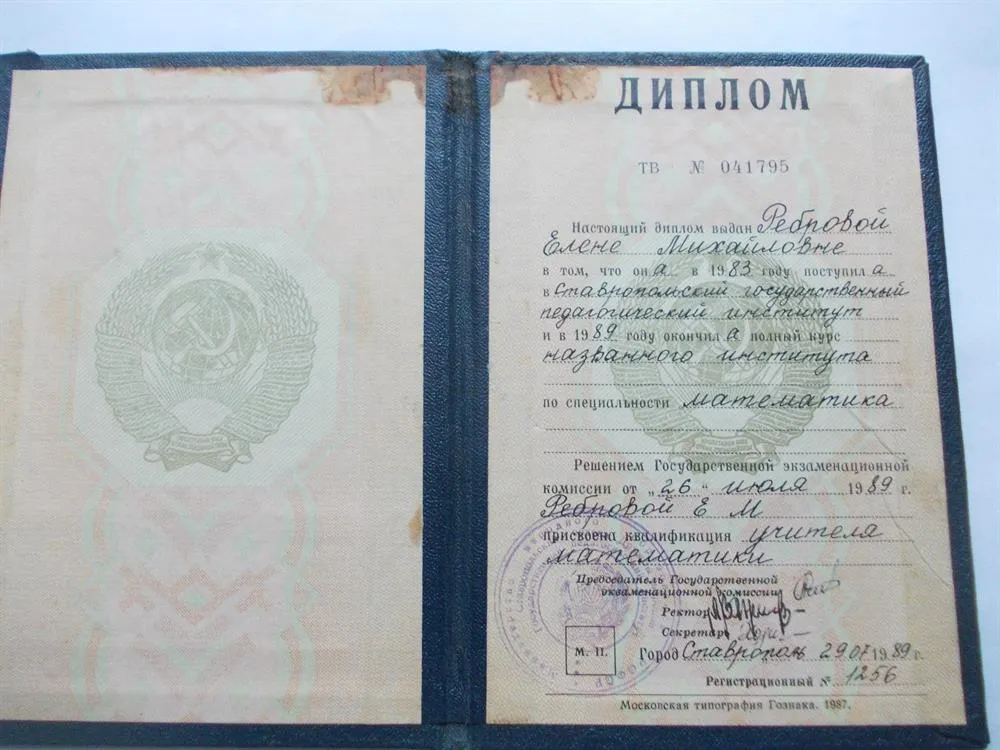 ДИПЛОМ
ТВ № 041795
Настоящий диплом выдан Ребровой
Елене Михайловне
в том, что он а в 1983 году поступил а
в Ставропольский государственный
педагогический институт
и в 1989 году окончил а полный курс
названного института
по специальности математика
Решением Государственной экзаменационной
комиссии от „26“ июля 1989 г.
Ребровой Е М
присвоена квалификация учителя
математики
Председатель Государственной
экзаменационной комиссии
Ректор
Секретарь
М. П.
Город Ставрополь 29 07 1989 г.
Регистрационный № 1256
Московская типография Гознака. 1987.